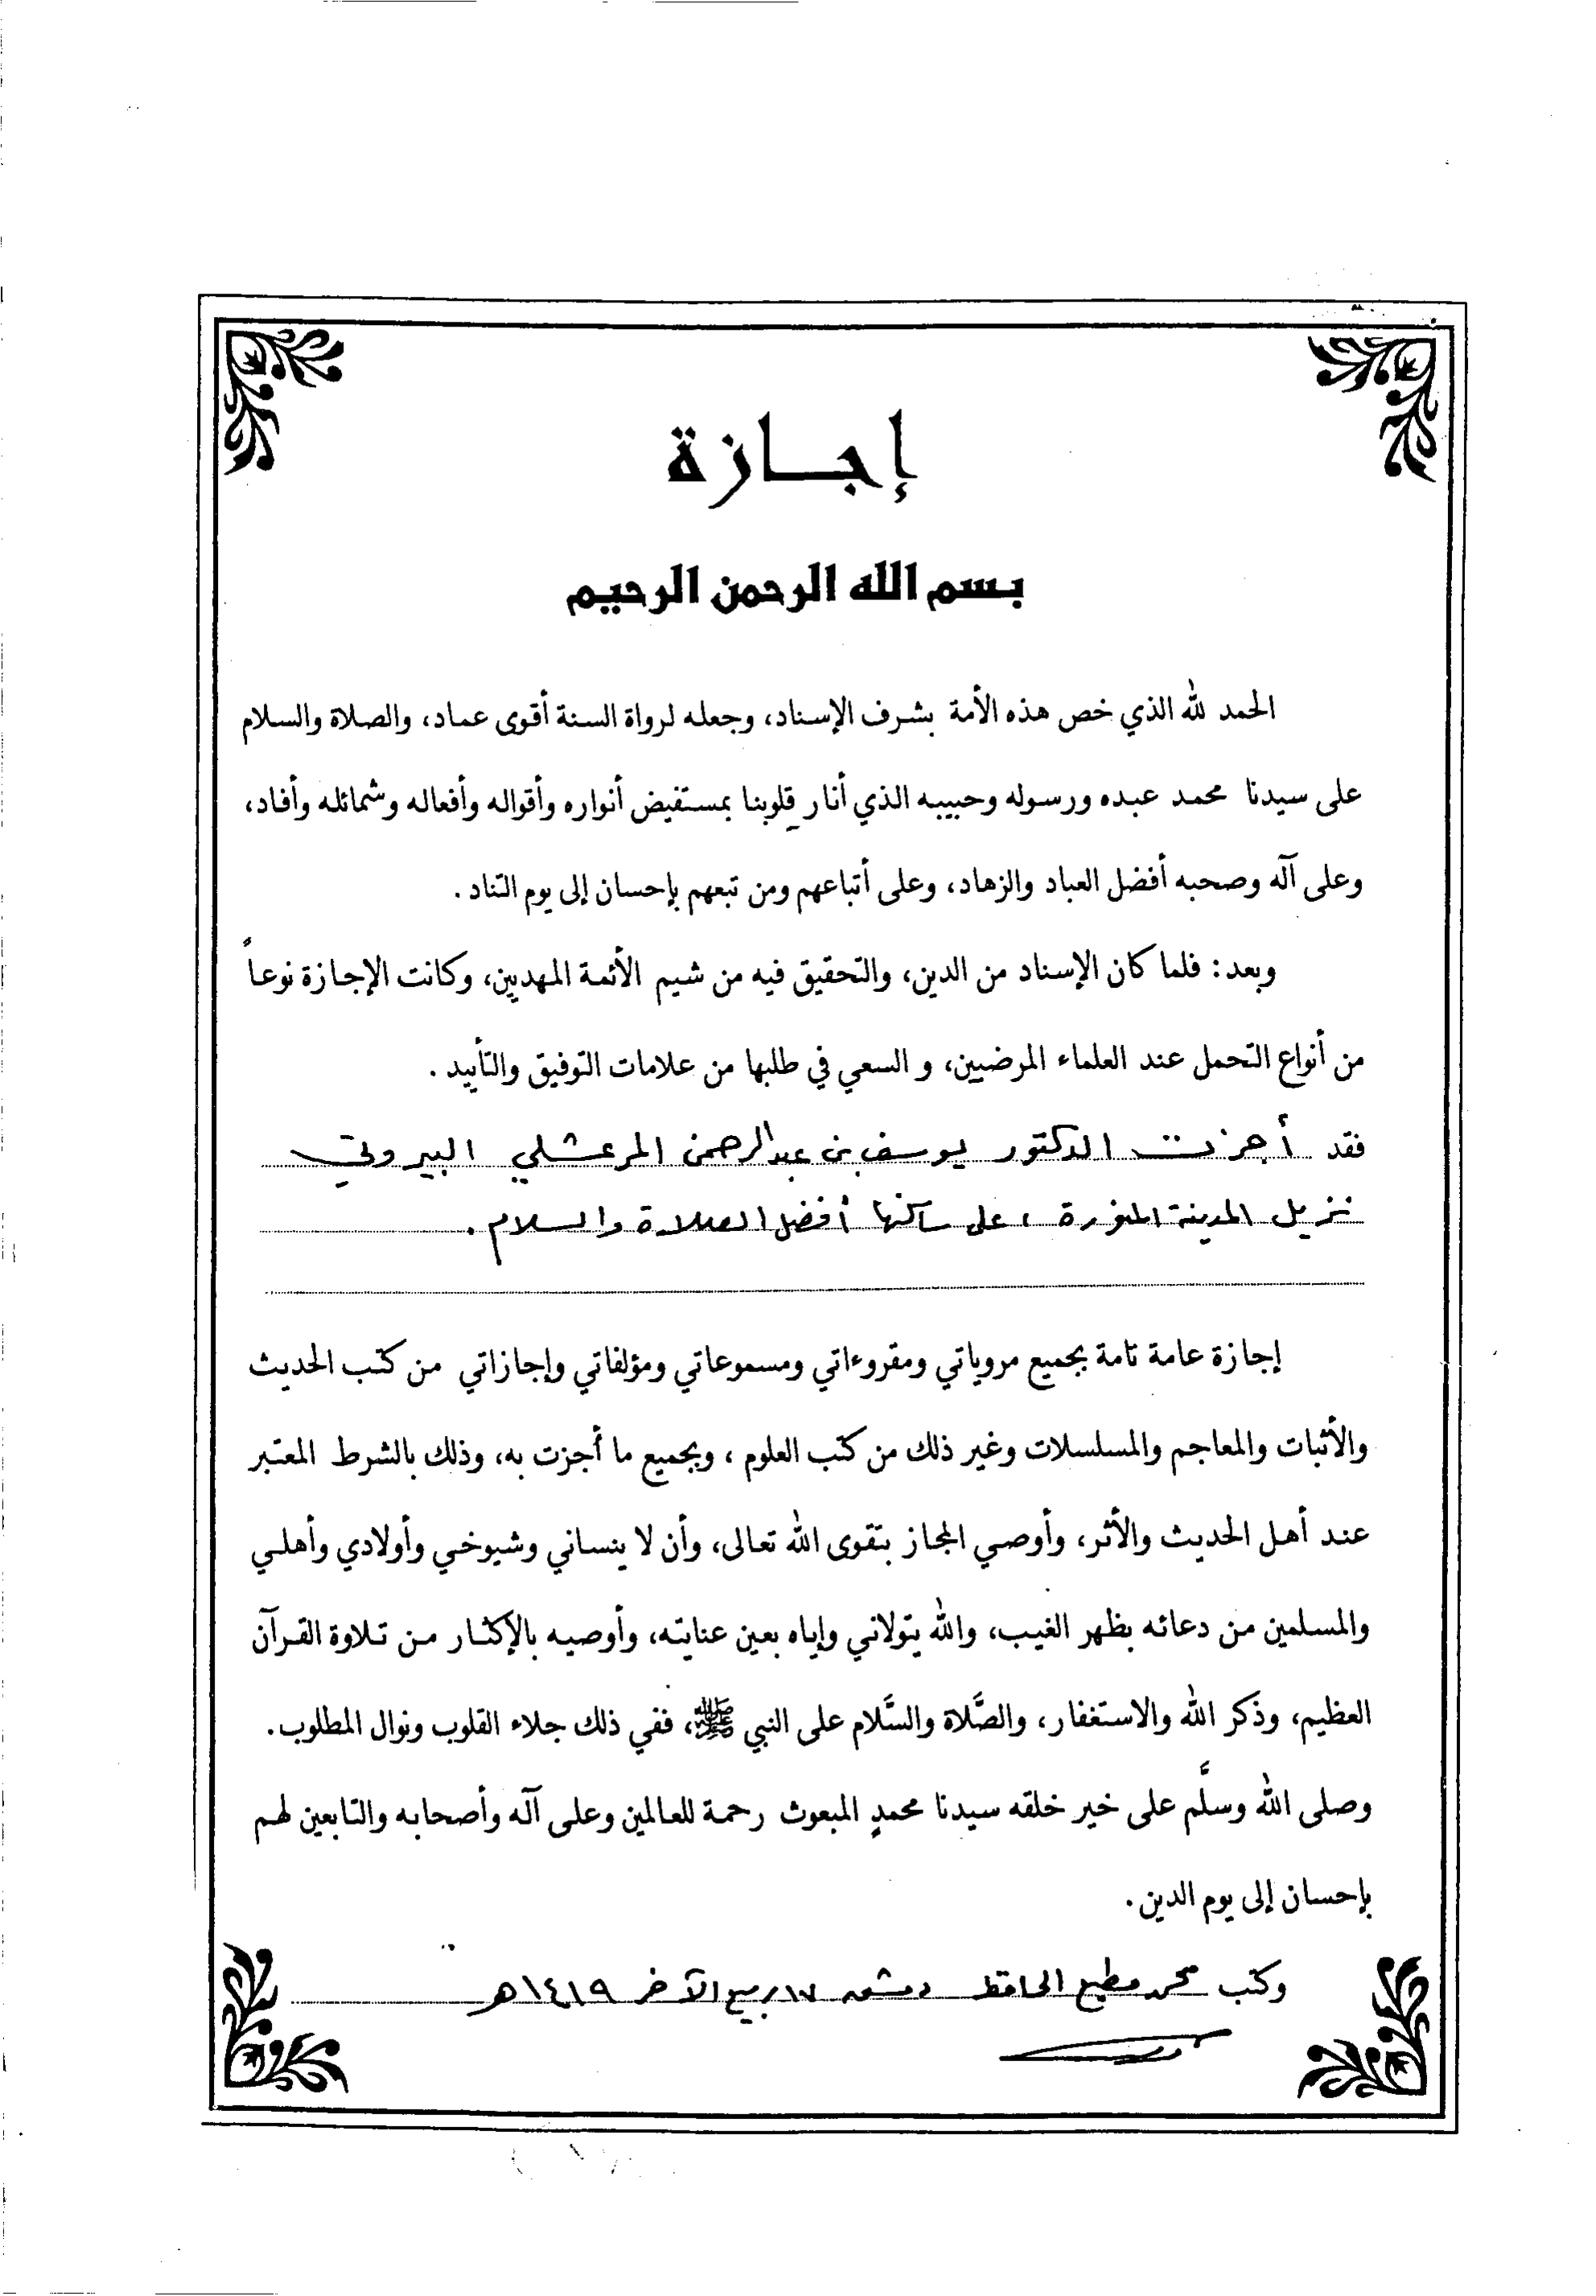 إجازة
بسم الله الرحمن الرحيم
الحمد لله الذي خص هذه الأمة بشرف الإسناد، وجعله لرواة السنة أقوى عماد، والصلاة والسلام
على سيدنا محمد عبده ورسوله وحبيبه الذي أنار قلوبنا بمستفيض أنواره وأقواله وأفعاله وشمائله وأفاد،
وعلى آله وصحبه أفضل العباد والزهاد، وعلى أتباعهم ومن تبعهم بإحسان إلى يوم التناد.
وبعد: فلما كان الإسناد من الدين، والتحقيق فيه من شيم الأئمة المهديين، وكانت الإجازة نوعاً
من أنواع التحمل عند العلماء المرضيين، و السعي في طلبها من علامات التوفيق والتأييد.
فقد أجزت الدكتور يوسف بن عبدالرحمن المرعشلي البيروتي
نزيل المدينة المنورة، على ساكنها أفضل الصلاة والسلام.
إجازة عامة تامة بجميع مروياتي ومقروءاتي ومسموعاتي ومؤلفاتي وإجازاتي من كتب الحديث
والأثبات والمعاجم والمسلسلات وغير ذلك من كتب العلوم، وبجميع ما أجزت به، وذلك بالشرط المعتبر
عند أهل الحديث والأثر، وأوصي المجاز بتقوى الله تعالى، وأن لا ينساني وشيوخي وأولادي وأهلي
والمسلمين من دعائه بظهر الغيب، والله يتولاني وإياه بعين عنايته، وأوصيه بالإكثار من تلاوة القرآن
العظيم، وذكر الله والاستغفار، والصَّلاة والسَّلام على النبي ﷺ، ففي ذلك جلاء القلوب ونوال المطلوب.
وصلى الله وسلَّم على خير خلقه سيدنا محمدٍ المبعوث رحمة للعالمين وعلى آله وأصحابه والتابعين لهم
بإحسان إلى يوم الدين.
وكتب محمد مطيع الحافظ دمشق ١٧ ربيع الآخر ١٤١٩هـ